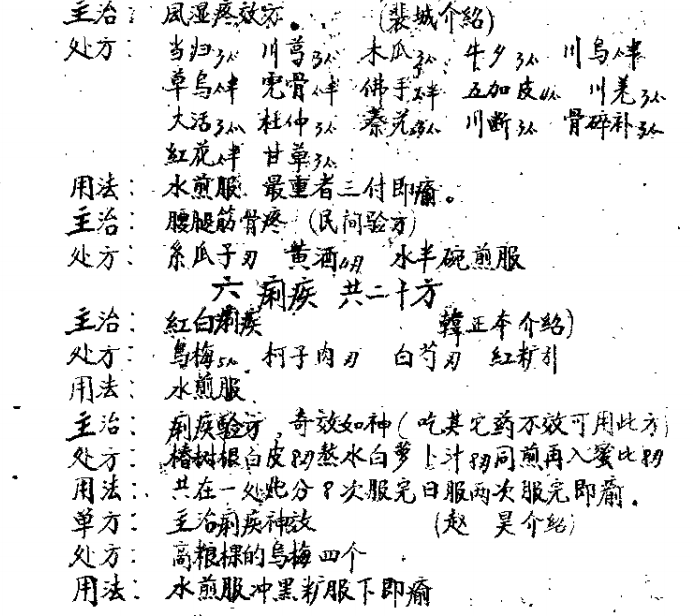 主治：風湿疼效方。（裴城介紹）
处方：当归3个 川芎3个 木瓜3个 牛夕3个 川烏个半
草烏个半 虎骨个半 佛手个半 五加皮 川羌3个
大活3个 杜仲3个 秦艽 川断3个 骨碎补3个
紅花个半 甘草3个
用法：水煎服 最重者三付即癒。
主治：腰腿筋骨疼（民间验方）
处方：糸瓜子 黄酒 水半碗煎服
六 痢疾 共二十方
主治：紅白痢疾 韓正本介紹）
处方：烏梅 柯子肉 白芍 紅粆引
用法：水煎服
主治：痢疾驗方，奇效如神（吃其它药不效可用此方）
处方：椿树根白皮 熬水白萝卜汁 同煎再入蜜比
用法：共在一处此分8次服完日服两次服完即癒.
单方：主治痢疾神放 （赵昊介紹）
处方：高粮棵的烏梅四个
用法：水煎服冲黑粆服下即癒